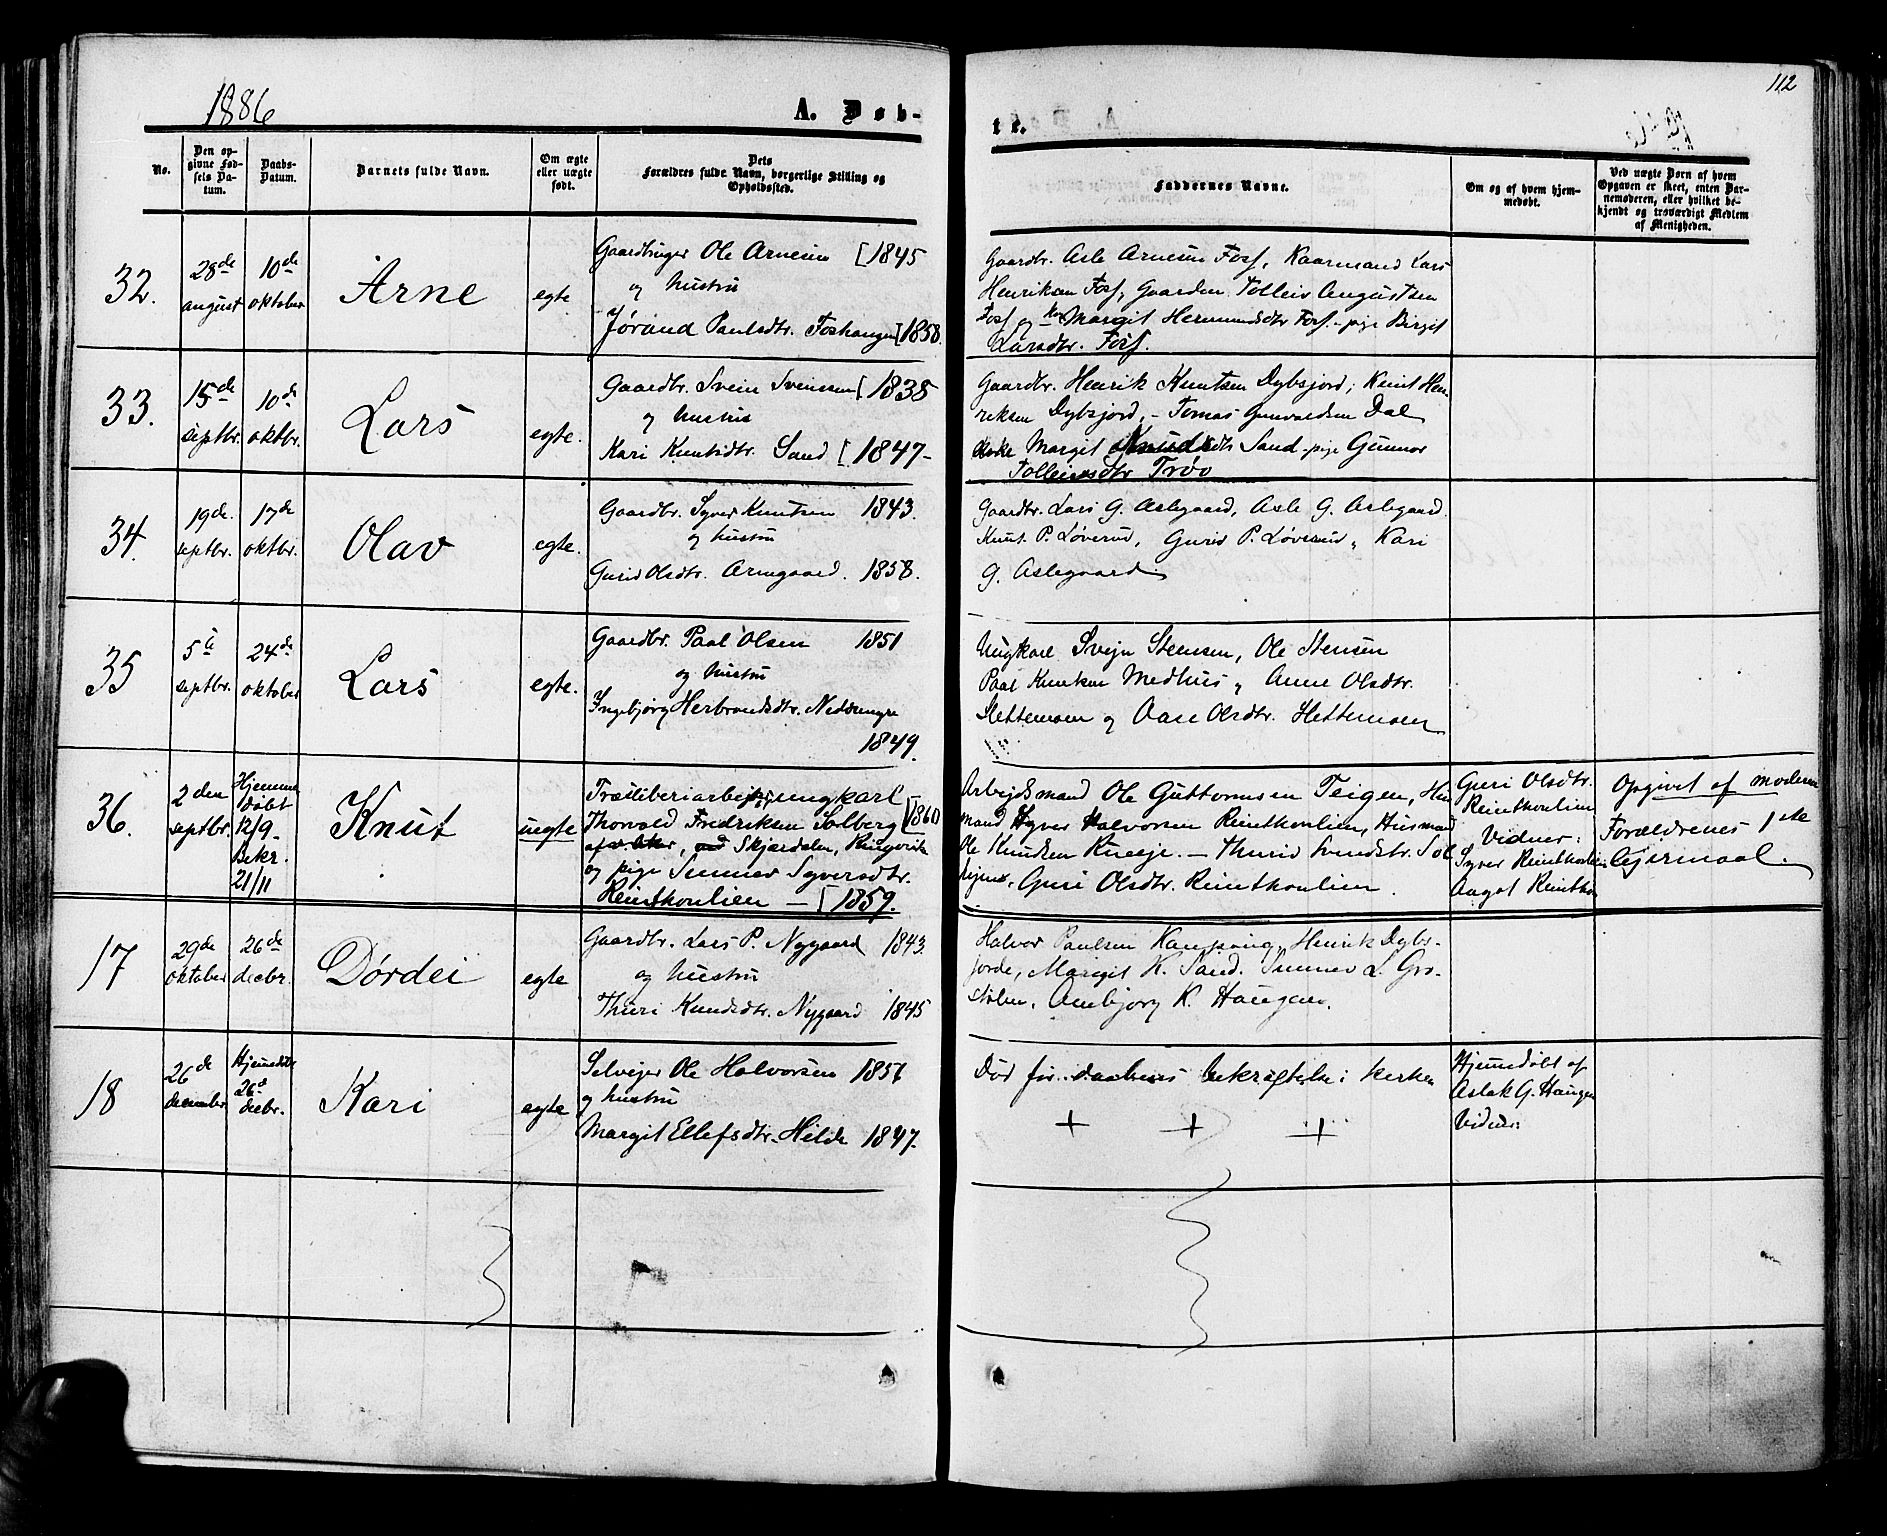 1886
A. Døb-
te.
112
No.
Den op-
givne Fød-
sels Da-
tum.
Daabs-
Datum.
Barnets fulde Navn.
Om ægte
eller uægte
født.
Dets
Forældres fulde Navn, borgerlige Stilling og
Opholdssted.
Faddernes Navne.
Om og af hvem hjem-
medøbt.
Ved uægte Børn af hvem
Opgaven er skeet, enten Bar-
nemoderen, eller hvilket be-
kjendt og troværdigt Medlem
af Menigheden.
32.
28de
august
10de
oktober
Arne
egte.
Gaardbruger Ole Arnesen [1845
og hustru
Jørand Paulsdtr. Foshaugen [1858.
Gaardbr. Asle Arnesen Foss, Kaarmand Lars
Henriksen Foss, Gaarden Tolleiv Augustsen
Foss og Margit Hermundsdtr Foss - pige Birgit
Larsdtr. Foss.
33.
15de
septbr.
10de
oktbr.
Lars
egte.
Gaardbr. Svein Svensen [1838
og hustru
Kari Knutsdtr. Sand [1847-
Gaardbr. Henrik Knutsen Dybsjord; Knut Hen-
riksen Dybsjord, - Tomas Gunvaldsen Dal
Margit Knudsdtr Sand - pige Gunnor
Tolleivsdtr Trøo
34.
19de
septbr.
17de
oktbr.
Olav
egte.
Gaardbr. Syver Knutsen 1843.
og hustru
Gurid Olsdtr. Arnegaard. 1858.
Gaardbr. Lars G. Aslegaard, Asle G. Aslegaard.
Knut P. Løverud, Gurid P. Løverud, Kari
G. Aslegaard
35
5te
septbr.
24de
oktober
Lars
egte.
Gaardbr. Paal Olsen 1851
og hustru
Ingebjørg Herbrandsdtr. Neddenegre
1849.
Ungkarl Svejn Steensen, Ole Stensen
Paal Knutsen Medhus, Anne Olsdtr.
Slettemoen og Aase Olsdtr. Slettemoen
36.
2den
septbr.
Hjemme
døbt
12/9-
Bekr.
21/11
Knut
uegte
Træsliberiarbeider, ungkarl
Thorvald Fredriksen Solberg [1860
Skjærdalen, Ringerike
og pige Sunnev Syversdtr.
Reinthonlien - [1859.
Arbejdsmand Ole Guttormsen Teigen, Hus
mand Syver Halvorsen Reintkonlien, Husmand
Ole Knudsen Kneeje. - Thurid Svendsdtr. Sol
Guri Olsdtr. Reintkonlien.
Guri Olsdtr.
Reintkonlien
Vidner:
Syver Reintkonlien
Aagot Reintkon
Opgivet af moderen
Forældrenes 1ste
lejermaal.
17
29de
oktober
26de
decbr.
Dørdei
egte
Gaardbr. Lars P. Nygaard 1843.
og hustru
Thuri Knudsdtr. Nygaard 1845
Halvor Paulsen Kaupang, Henrik Dybs-
jorde, Margit K. Sand. Sunnev L. Gro-
stølen, Anbjørg K. Haugen.
18
26de
december
Hjemmedøbt
26de
decbr.
Kari
egte
Selvejer Ole Halvorsen 1857
og hustru
Margit Ellefsdtr. Hilde 1847.
Død før daabens bekræftelse i kirken
+ + +
Hjemmedøbt af
Aslak G. Haugen
Vidner: